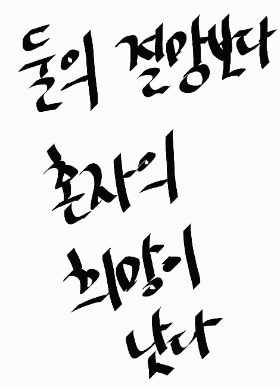 둘의 절망보다
혼자의
희망이
낫다